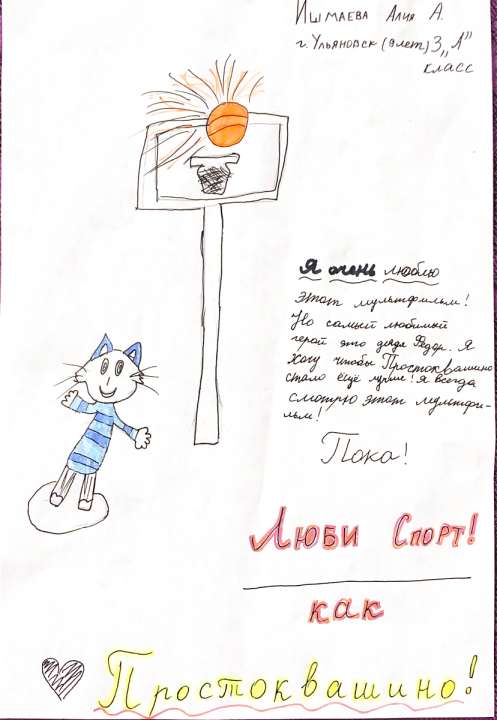 Ишмаева Алия А.
г. Ульяновск (9 лет) 3 „А”
класс
Я очень люблю
этот мультфильм!
Но самый любимый
герой это дядя Фёдор. Я
хочу чтобы Простоквашино
стало ещё лучше! Я всегда
смотрю этот мультфи-
льм!
Пока!
Люби Спорт!
как
Простоквашино!